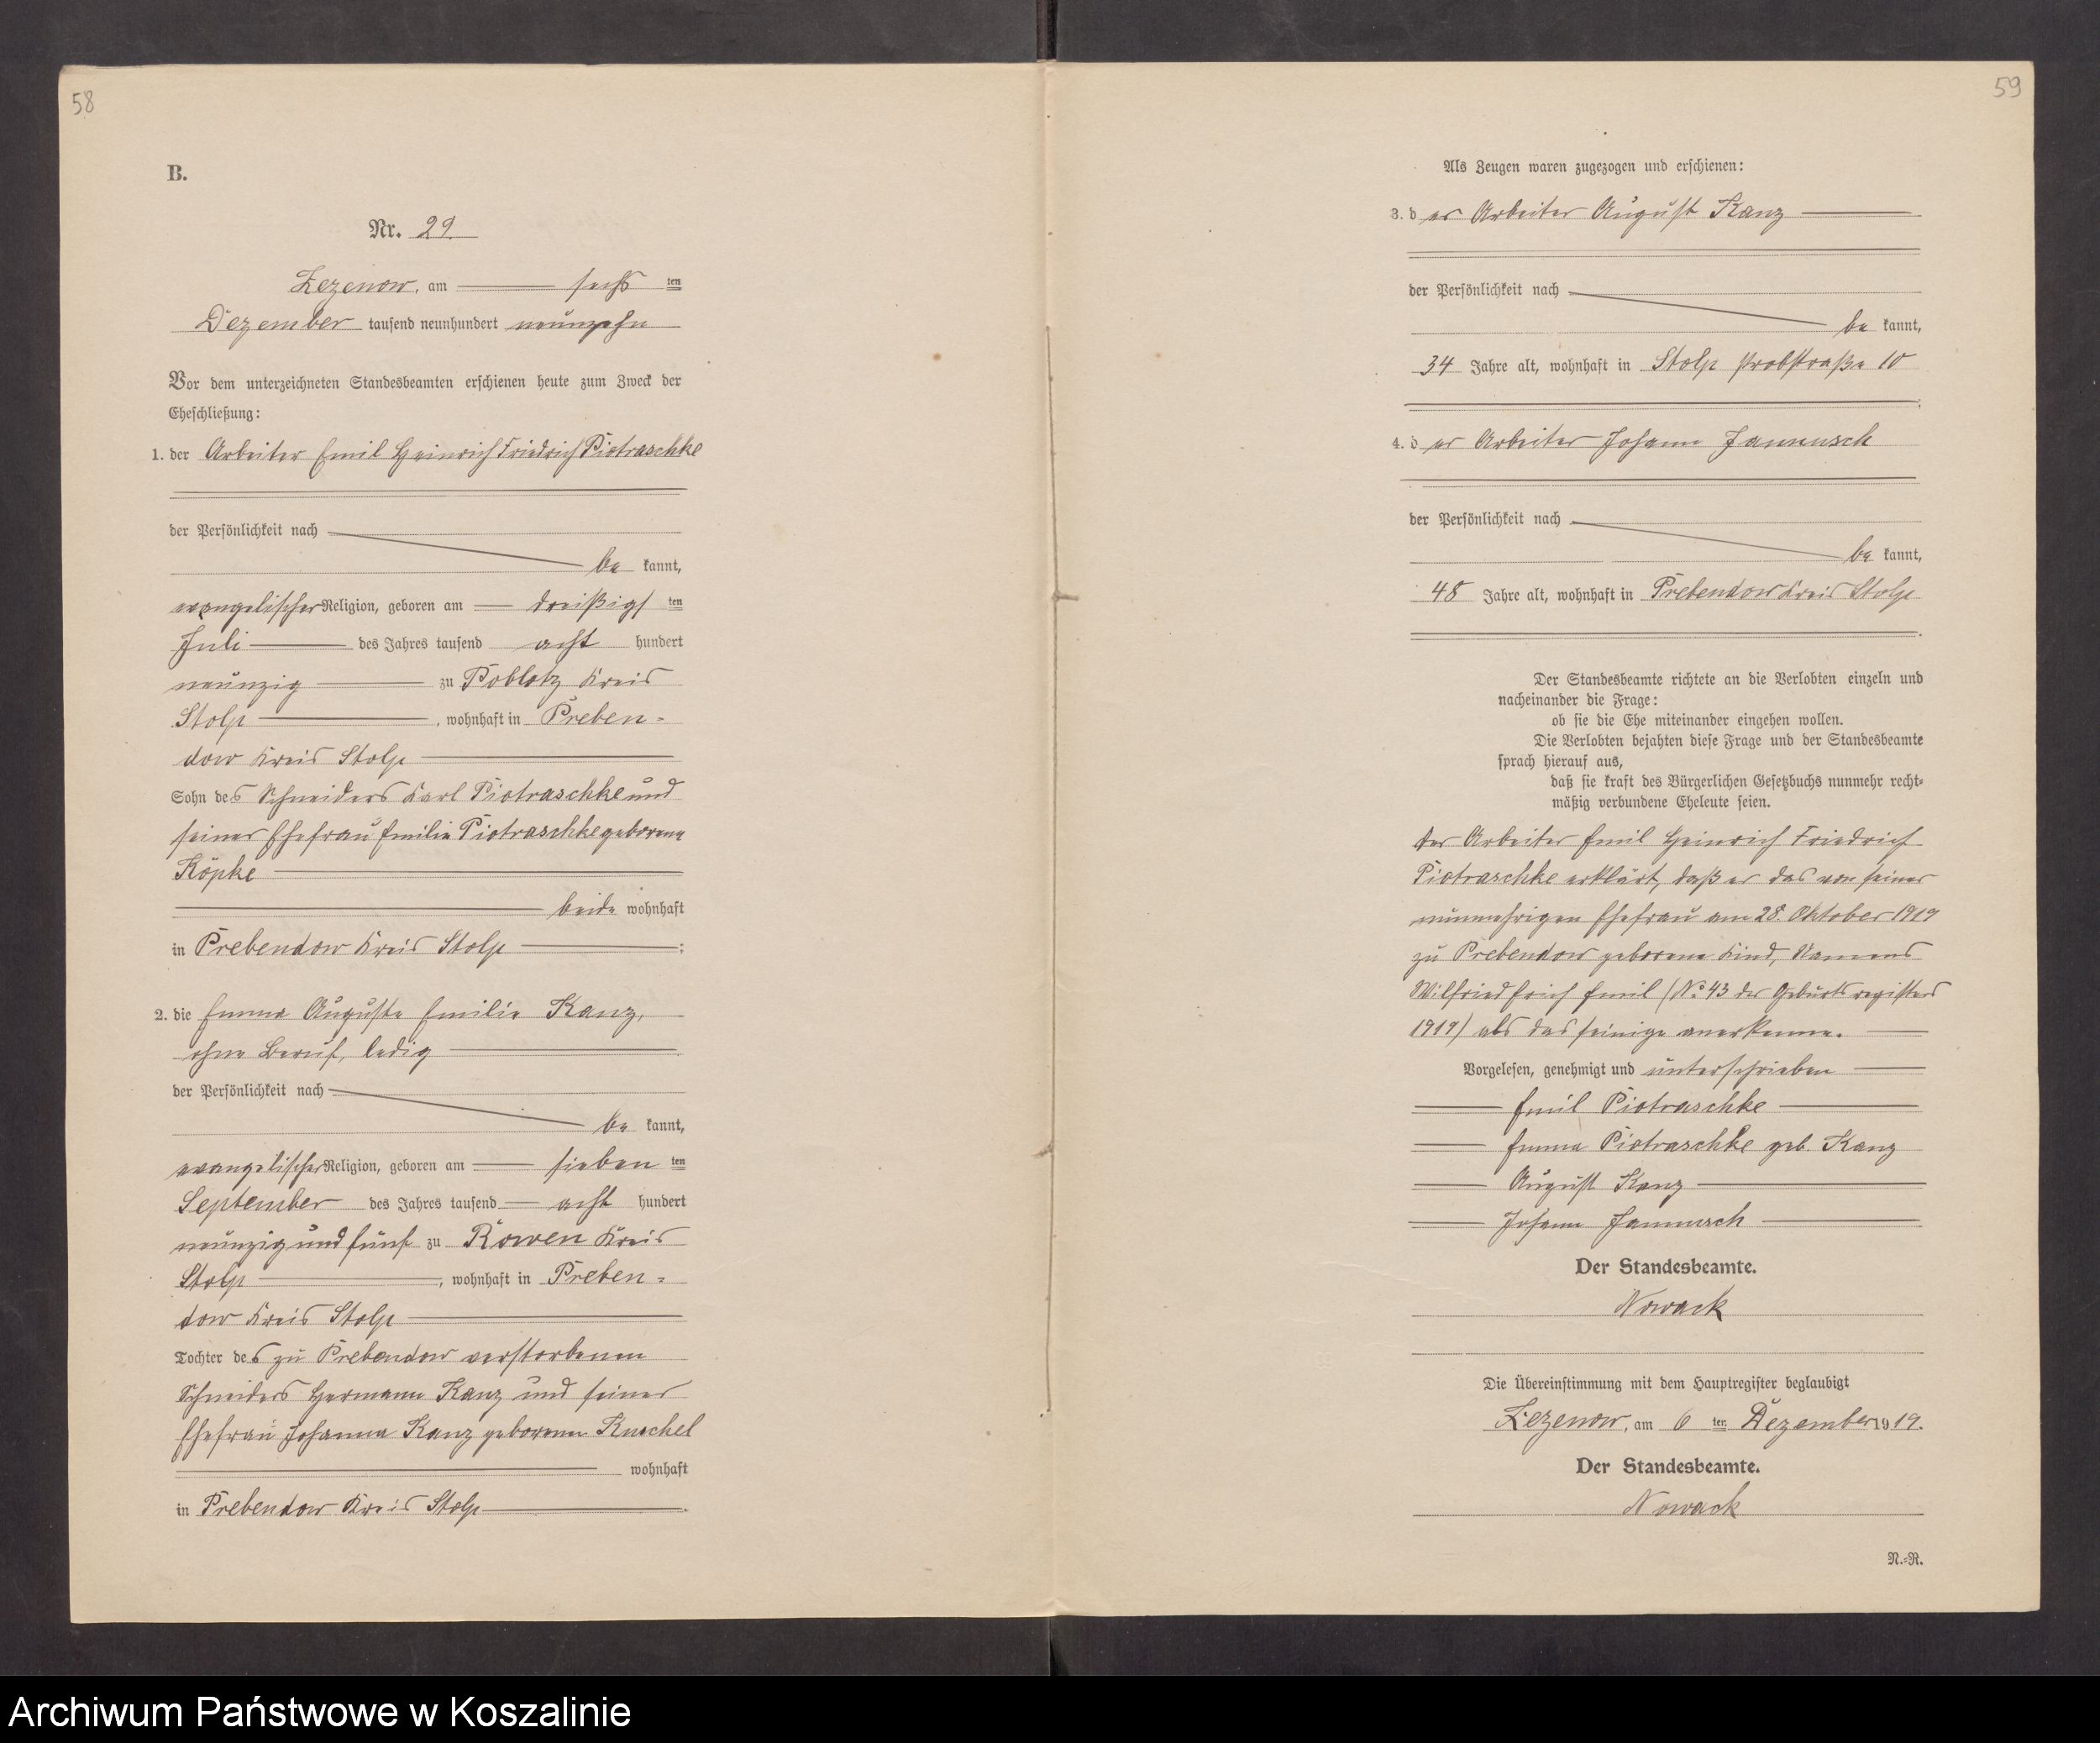 58
B.
Nr. 29.
Zezenow, am sechs ten
Dezember tausend neunhundert neunzehn
Vor dem unterzeichneten Standesbeamten erschienen heute zum Zweck der
Eheschließung:
1. der Arbeiter Emil Heinrich Friedrich Piotraschke
der Persönlichkeit nach
be kannt,
evangelischer Religion, geboren am dreißigs ten
Juli des Jahres tausend acht hundert
neunzig zu Poblotz Kreis
Stolp, wohnhaft in Preben-
dow Kreis Stolp
Sohn des Schneiders Karl Piotraschke und
seiner Ehefrau Emilie Piotraschke geborene
Köpke
beide wohnhaft
in Prebendow Kreis Stolp;
2. die Emma Auguste Emilie Kanz,
ohne Beruf, ledig
der Persönlichkeit nach
be kannt,
evangelischer Religion, geboren am sieben ten
September des Jahres tausend acht hundert
neunzig und fünf zu Rowen Kreis
Stolp, wohnhaft in Preben-
dow Kreis Stolp
Tochter des zu Prebendow verstorbenen
Schneiders Hermann Kanz und seiner
Ehefrau Johanna Kanz geborenen Kuschel
wohnhaft
in Prebendow Kreis Stolp.
59
Als Zeugen waren zugezogen und erschienen:
3. d er Arbeiter August Kanz
der Persönlichkeit nach
be kannt,
34 Jahre alt, wohnhaft in Stolp Probstraße 10
;
4. d er Arbeiter Johann Jannusch
der Persönlichkeit nach
be kannt,
48 Jahre alt, wohnhaft in Prebendow Kreis Stolp
.
Der Standesbeamte richtete an die Verlobten einzeln und
nacheinander die Frage:
ob sie die Ehe miteinander eingehen wollen.
Die Verlobten bejahten diese Frage und der Standesbeamte
sprach hierauf aus,
daß sie kraft des Bürgerlichen Gesetzbuchs nunmehr recht-
mäßig verbundene Eheleute seien.
Der Arbeiter Emil Heinrich Friedrich
Piotraschke erklärt, daß er das von seiner
nunmehrigen Ehefrau am 28. Oktober 1919
zu Prebendow geborene Kind, Namens
Wilfried Erich Emil (No 43 des Geburtsregisters
1919) als das seinige anerkenne.
Vorgelesen, genehmigt und unterschrieben
Emil Piotraschke
Emma Piotraschke geb. Kanz
August Kanz
Johann Jannusch
Der Standesbeamte.
Nowack
Die Übereinstimmung mit dem Hauptregister beglaubigt
Zezenow, am 6 ten Dezember 1919.
Der Standesbeamte.
Nowack
N.-R.
Archiwum Państwowe w Koszalinie